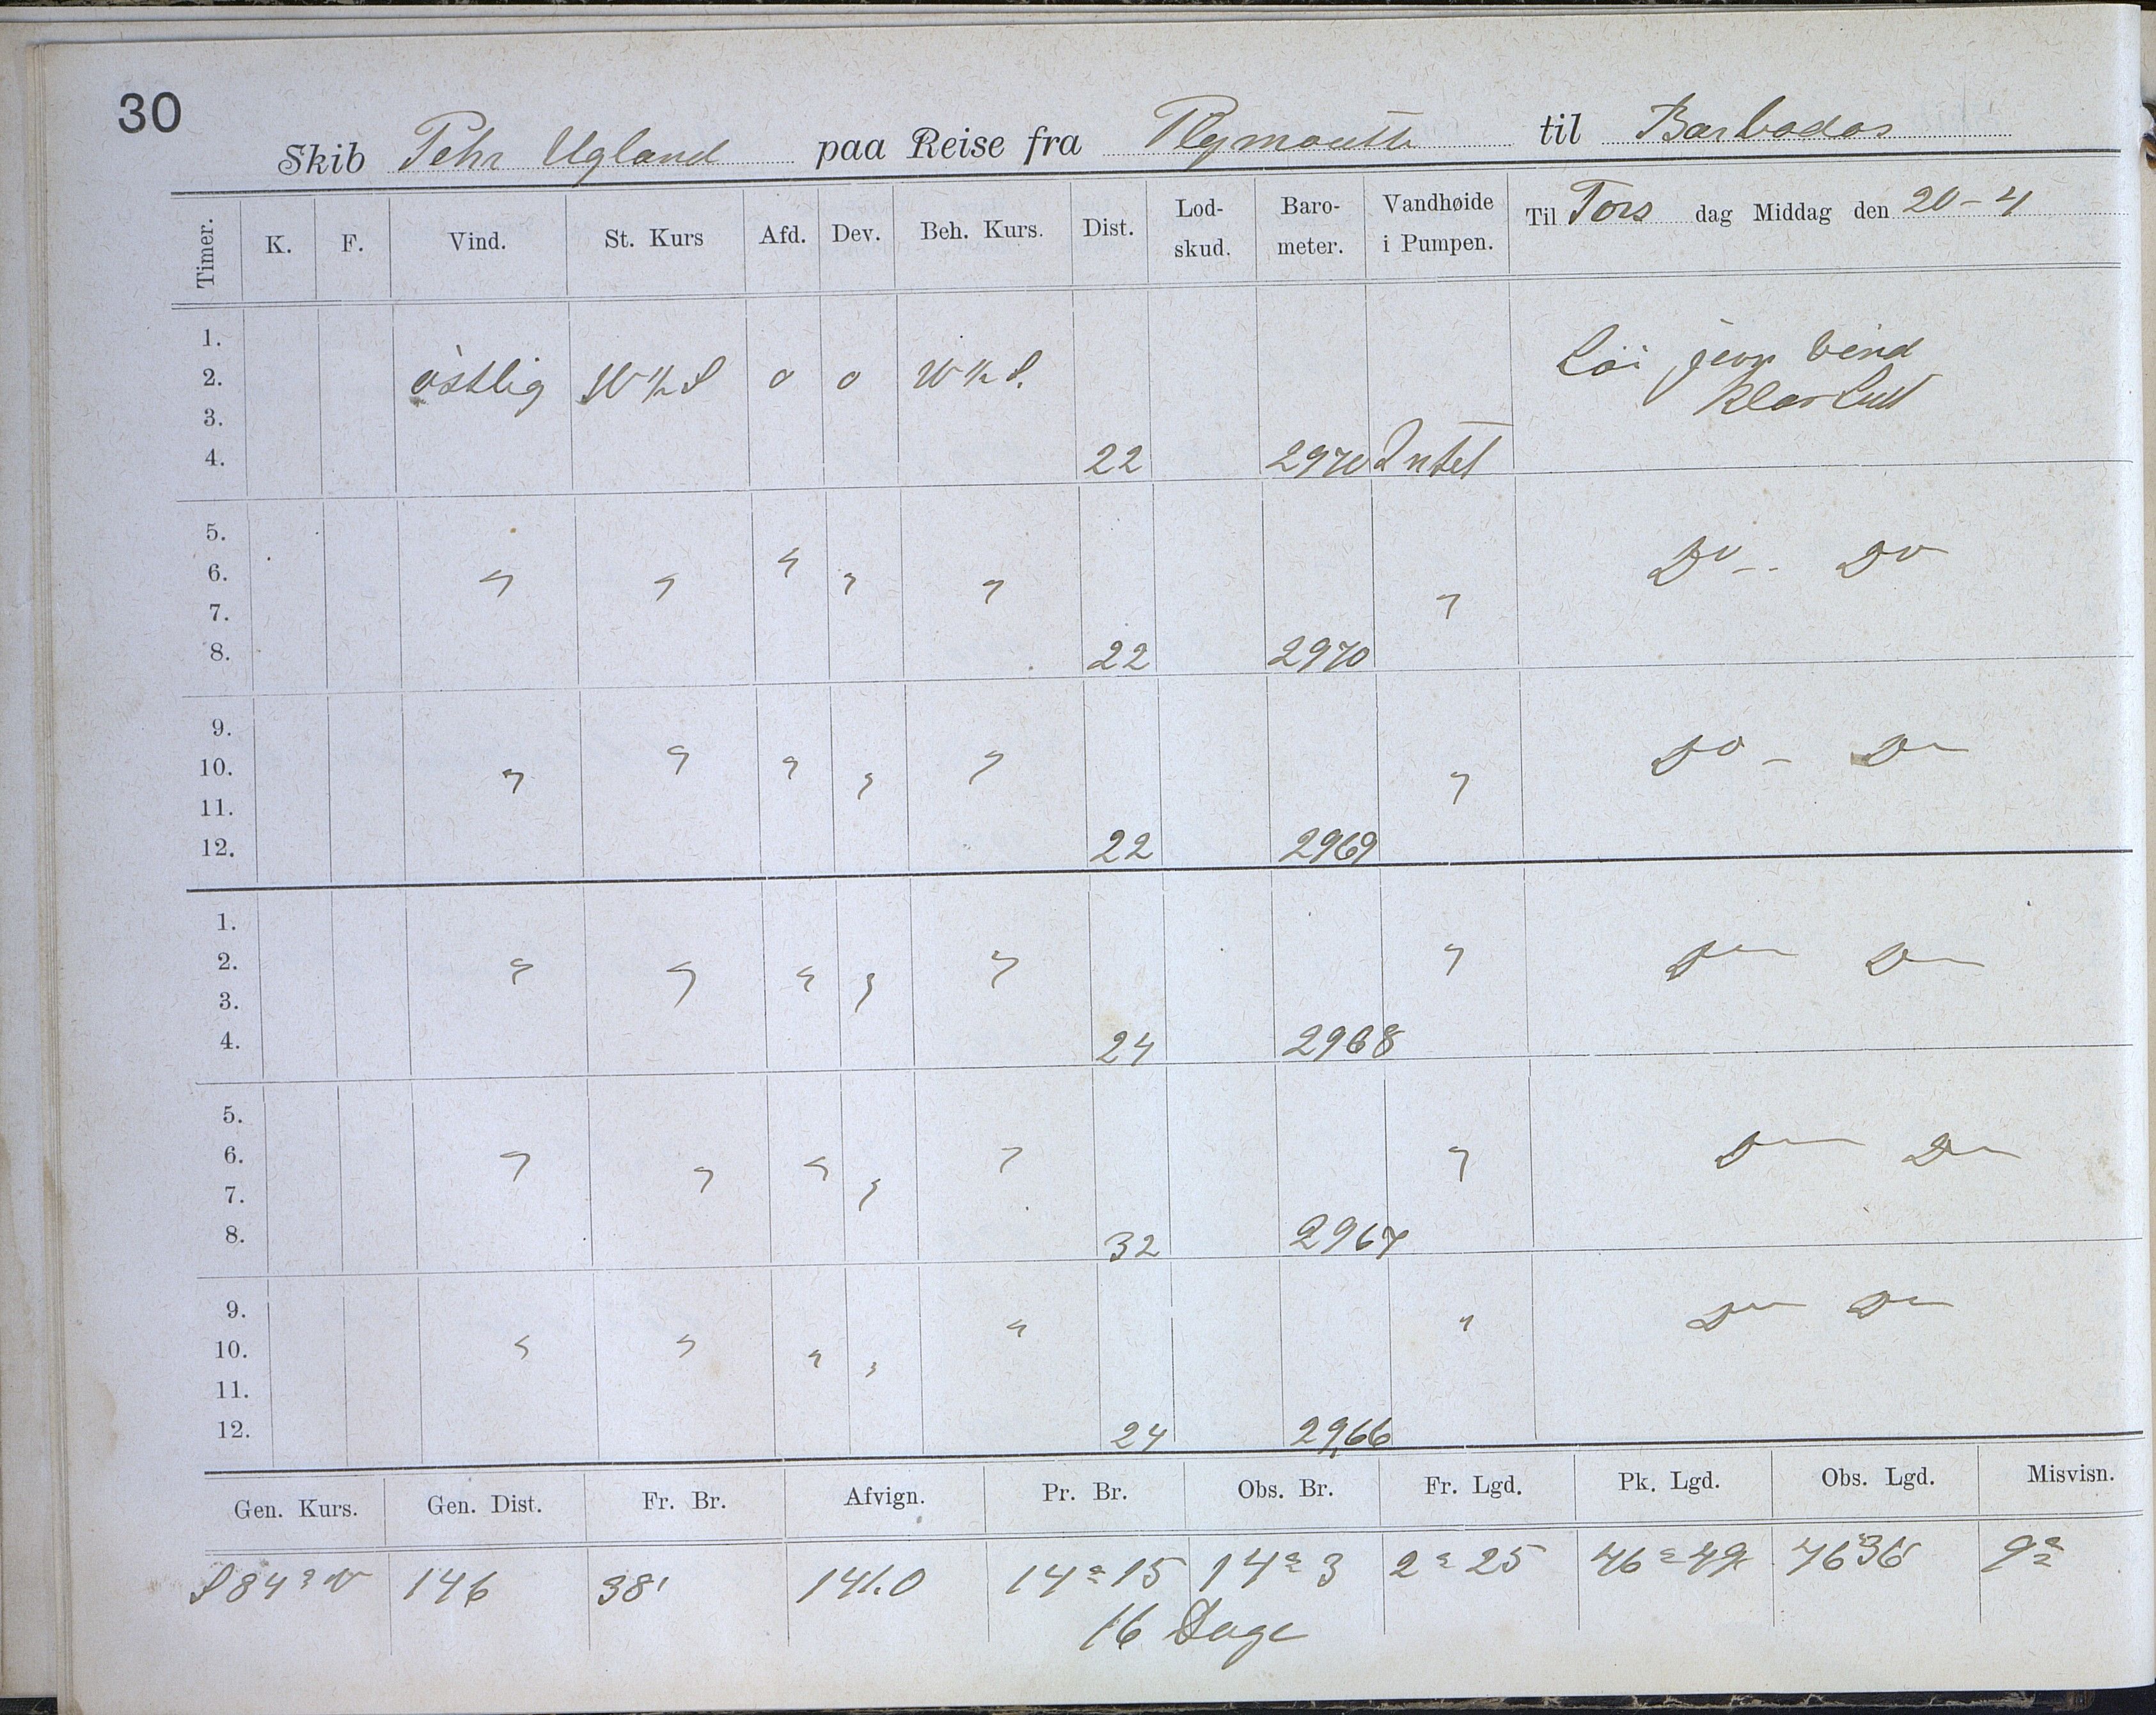 30
Skib Pehr Ugland paa Reise fra Plymouth til Barbados
Timer. K. F. Vind. St. Kurs Afd. Dev. Beh. Kurs. Dist. Lod-skud. Baro-meter. Vandhøide i Pumpen. Til Tors dag Middag den 20-4
1. Löi jevn vind
2. östlig W½S o o W½S.
3. Klar Luft
4. 22 2970 Intet
5.
6. " " " " " " Do - Do
7.
8. 22 2970
9.
10. " " " " " " Do - Do
11.
12. 22 2969
1.
2. " " " " " " Do Do
3.
4. 24 2968
5.
6. " " " " " " Do Do
7.
8. 32 2967
9.
10. " " " " " " Do Do
11.
12. 24 2966
Gen. Kurs. Gen. Dist. Fr. Br. Afvign. Pr. Br. Obs. Br. Fr. Lgd. Pk. Lgd. Obs. Lgd. Misvisn.
S 84° W 146 38' 141.0 14° 15 14° 3 2° 25 46° 49 46 36 9°
16 Dage